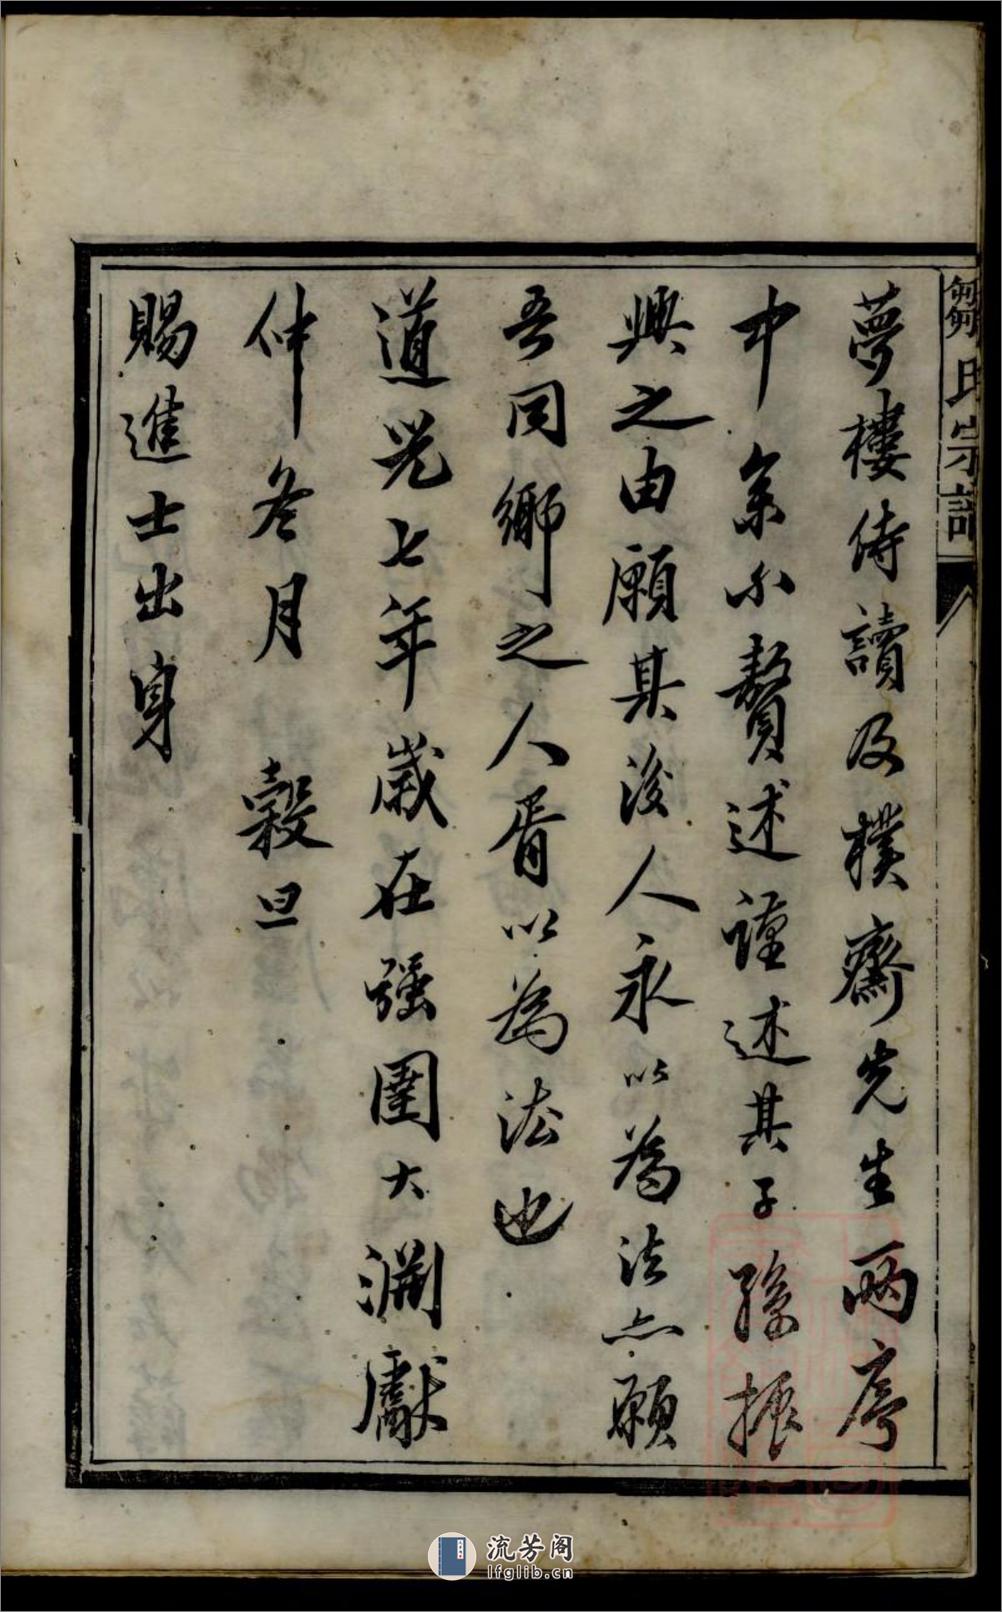 鄒氏宗譜
夢樓侍讀及樸齋先生兩序
中余不贅述謹述其子孫振
興之由願其後人永以為法亦願
吾同鄉之人胥以為法也
道光七年歲在彊圉大淵獻
仲冬月 穀旦
賜進士出身
流芳阁
lfglib.cn